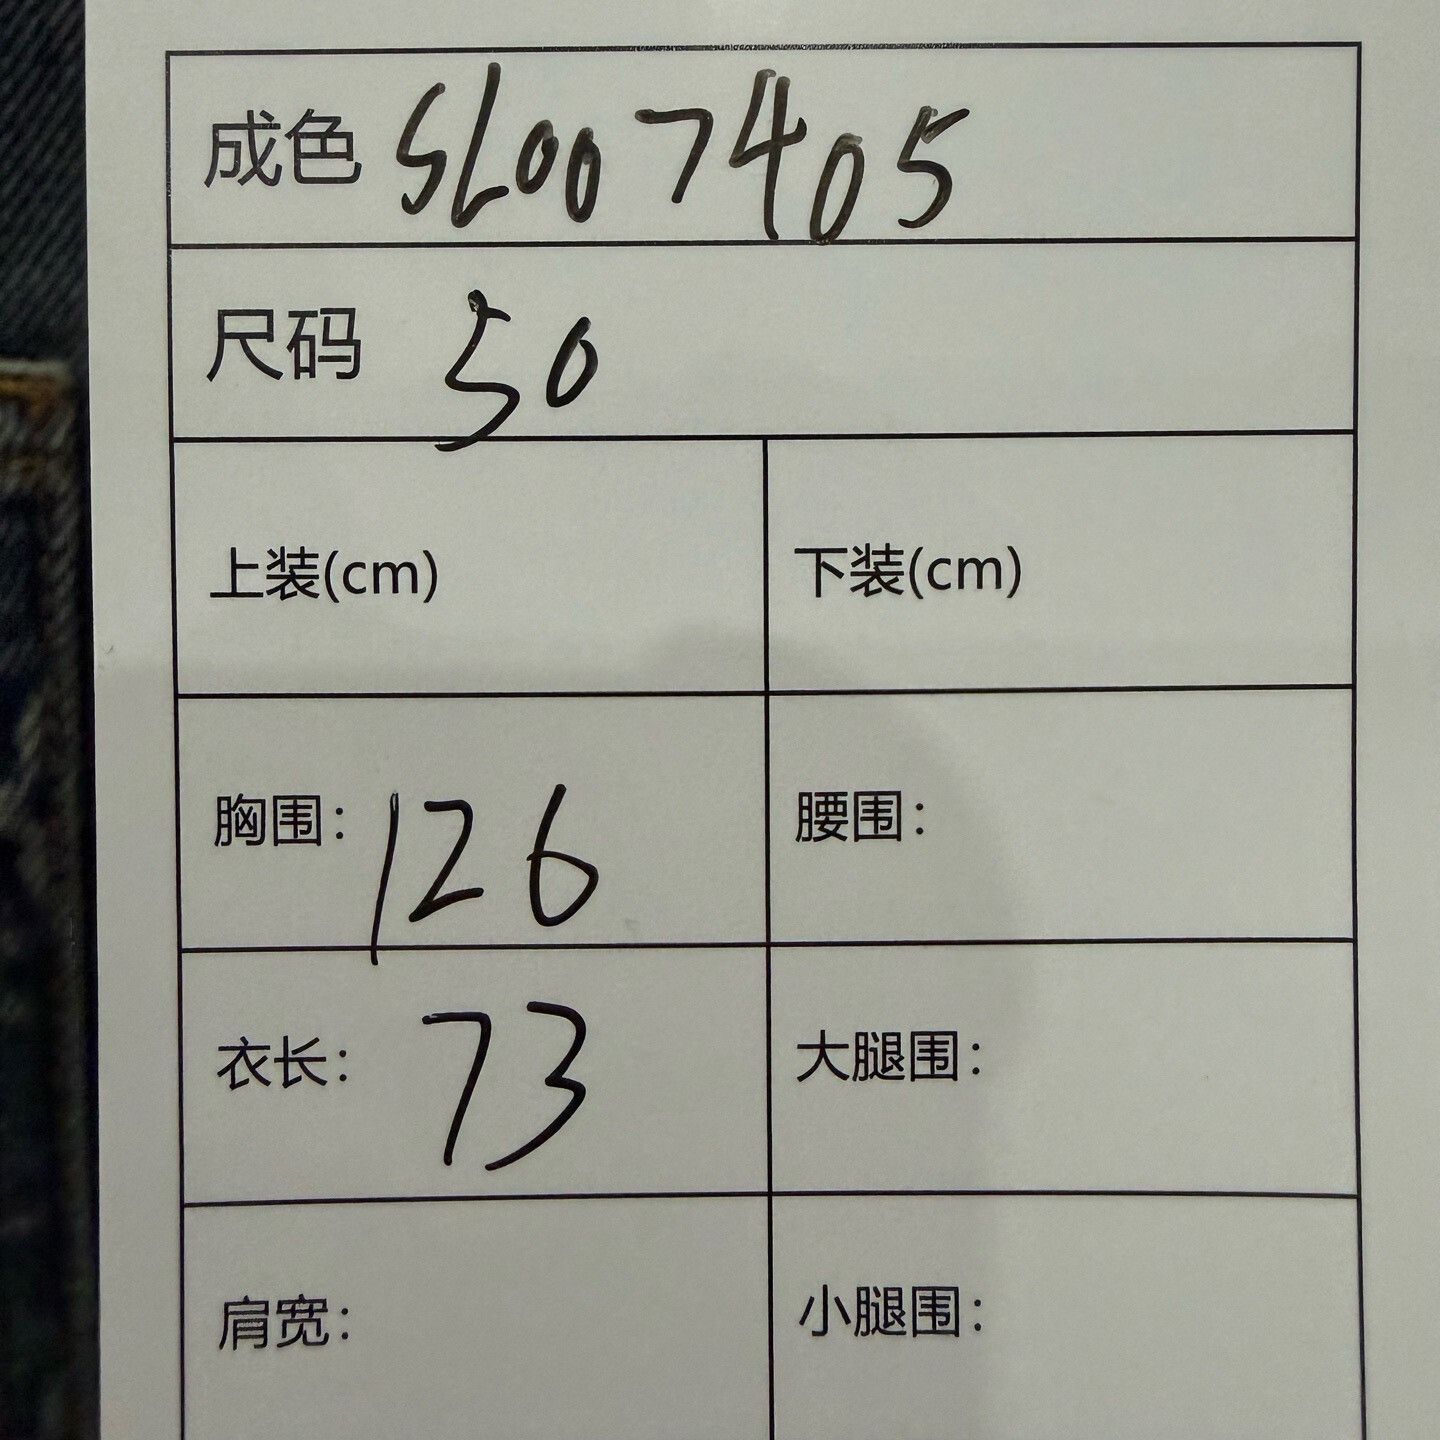 成色 SL007405
尺码 50
上装(cm) 下装(cm)
胸围：126 腰围：
衣长：73 大腿围：
肩宽： 小腿围：